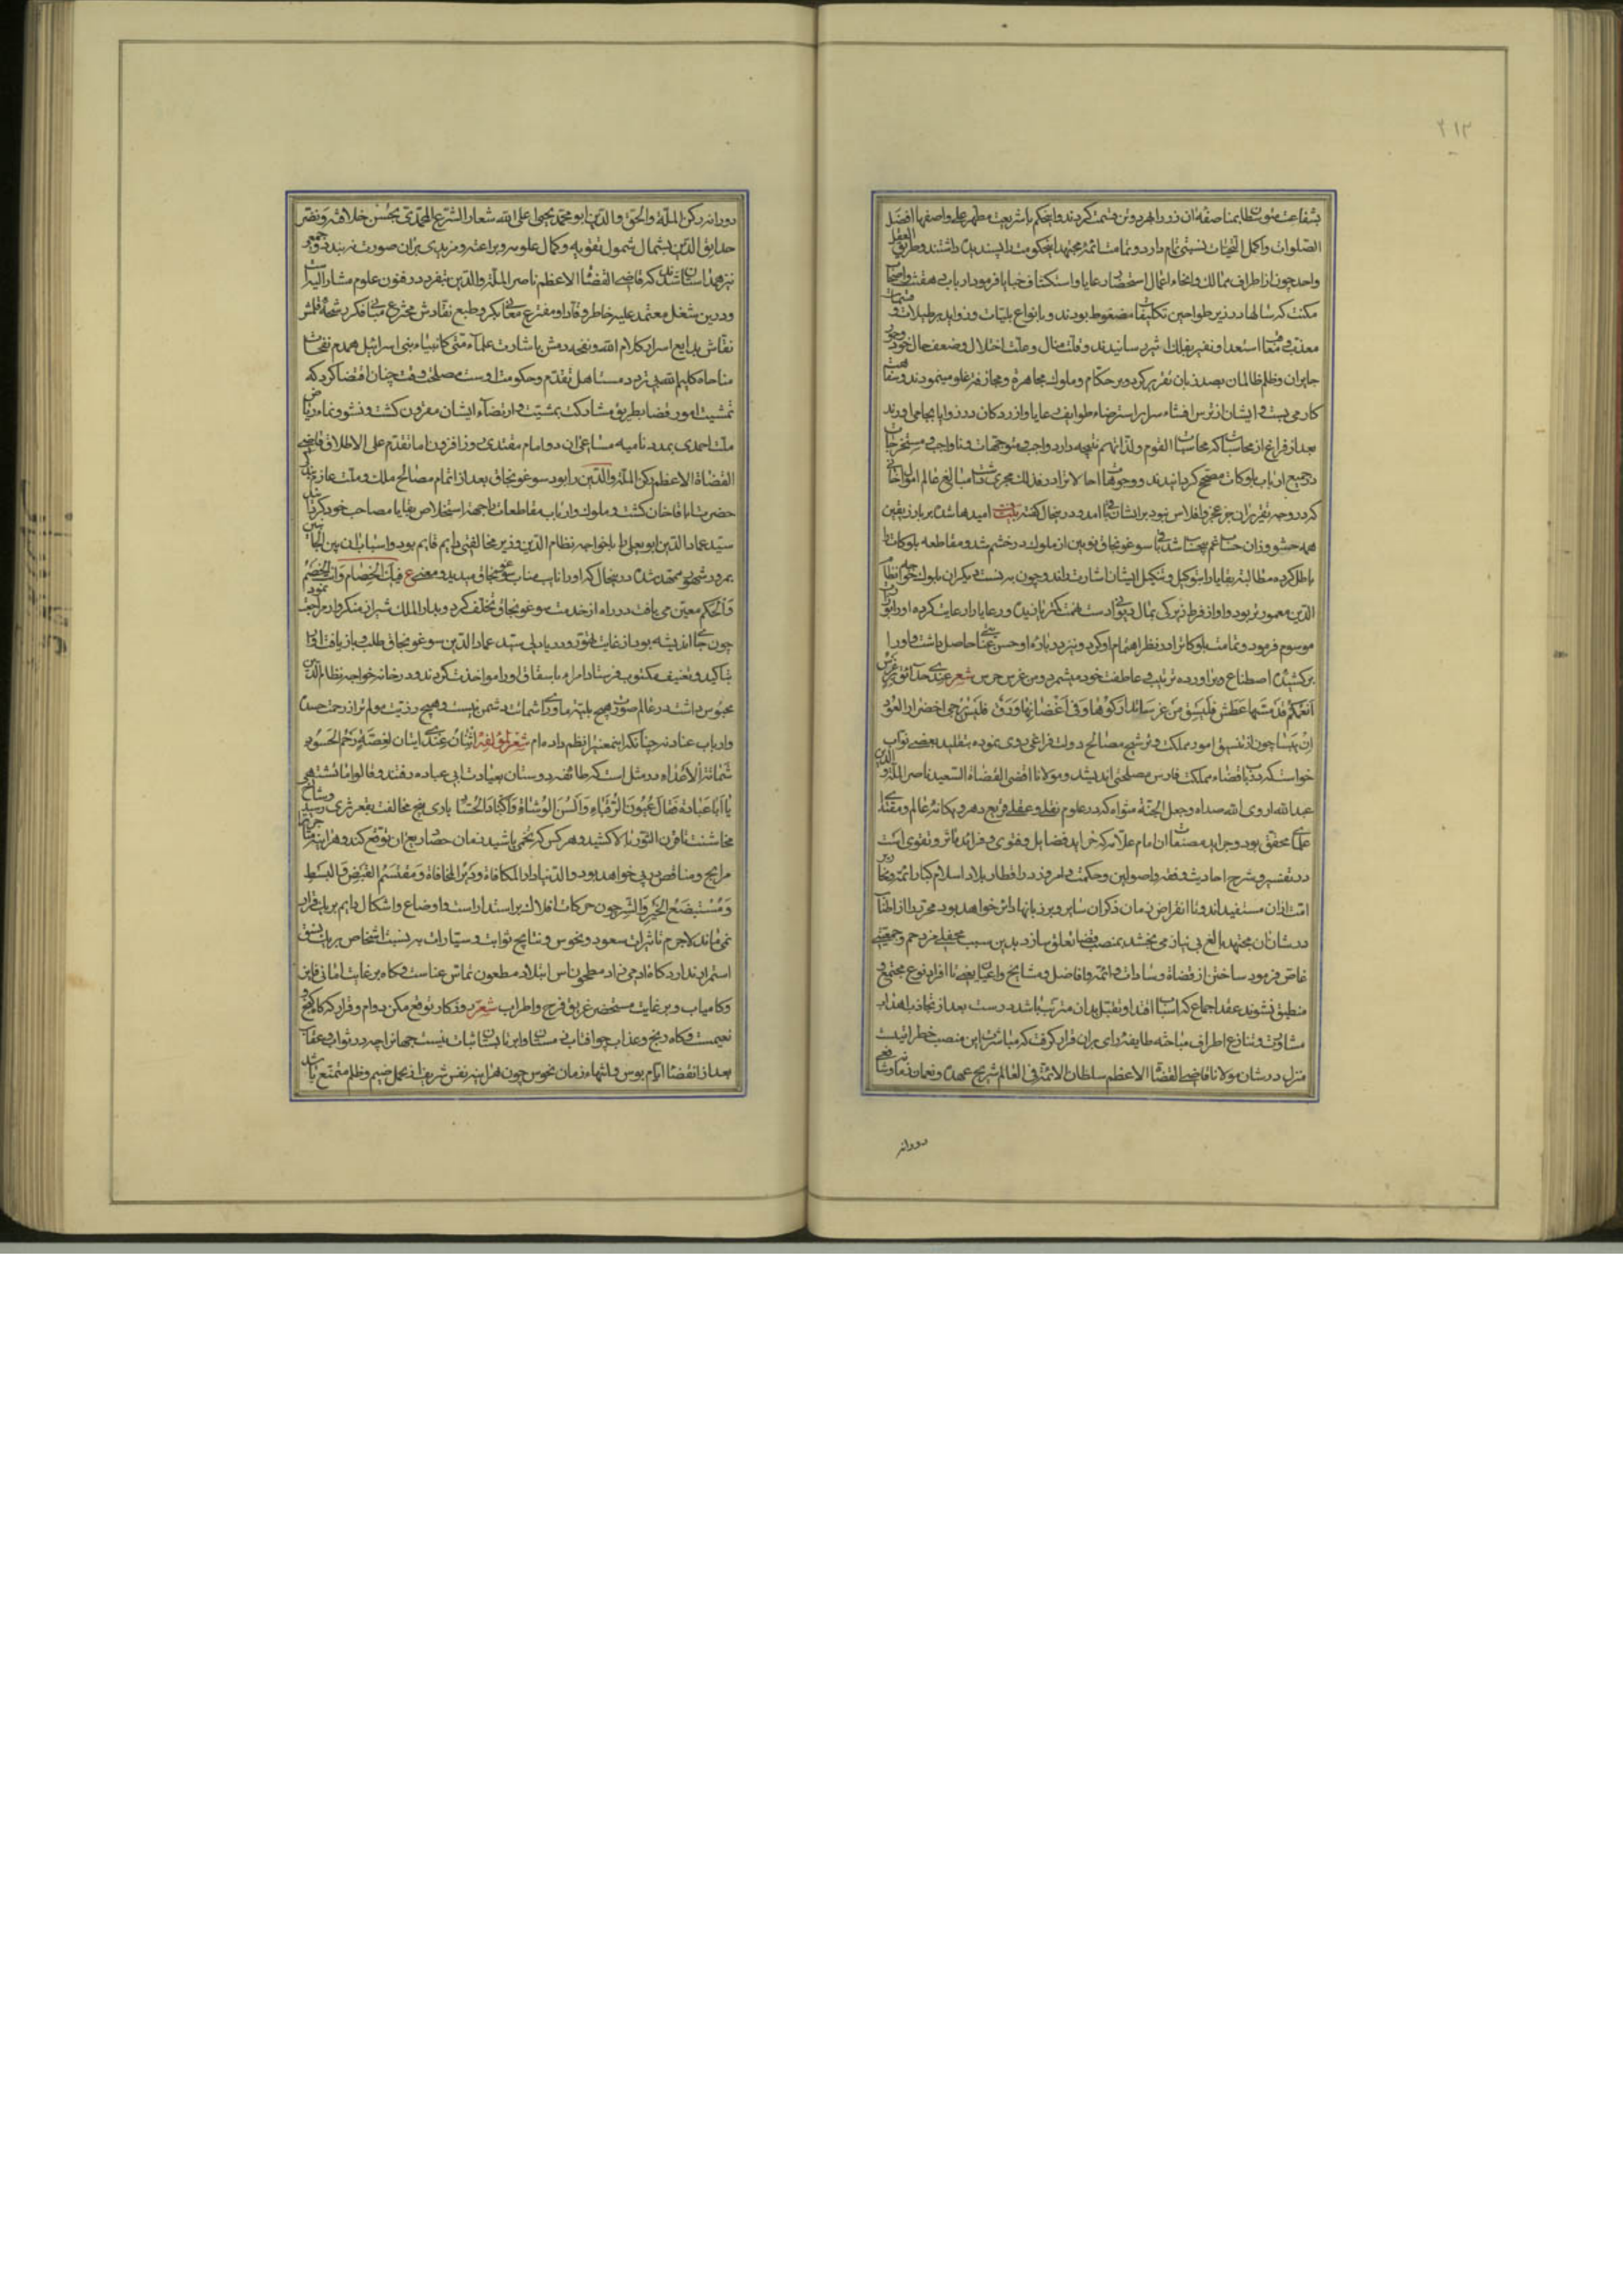 ۲۱۳
بشفاعت منوبان طلبا بمناصفه آن زر را بهر دو تن قسمت کردند و این حکم با شریعت مطهر علی واصفها افضل
الصلوات و اکمل التحیات نسبتی تمام دارد و تمامت ائمه مجتهد این حکومت را پسندیده داشتند و طریق العقل
واحد چون از اطراف ممالک و انحاء اعمال استحضار رعایا و استکشاف خبایا فرمود ارباب
مکنت که سالها در زیر طواحین تکلیفات مضغوط بودند و بانواع بلیات و زواید
معذب و معنا استعدا و نفیر بفلک اثیر رسانیدند و قلت منال و علت اختلال و ضعف حال خود
جایران و ظلم ظالمان بصد زبان تقریر کرد و بر حکام و ملوک مجاهرة و مجازفة غلو مینمودند
کار می بست و ایشان از ترس افشاء سرایر استرضاء طوایف رعایا و ازردکان در زوایا بجا می آوردند
بعد از فراغ از محاسبات که محاسبات القوم ولذاتهم نتیجه دارد واجب موجهات و ناواجب مستخرجات
در جمیع ارباب بلوکات مصحح کردانیدند و وجوهات
که در وجه تقریر آن جز عجز و افلاس نبود بر ایشان آمد و در ینحال کفته بیت امیدها شده بر باد زیقین
همه حشو وزان حساب غم بیحساب شد سوغونجاق نویین از ملوک در خشم شد و مقاطعه بلوکات را
باطل کرده مطالبه بقایا را بتوکیل و تنکیل ایشان اشارت راند و چون به نسبت دیکران بلوک خواجه نظام
الدین معمورتر بود و او از فرط زیرکی بمال دست همت کثر یازیده و رعایا را رعایت کرده او را
موسوم فرمود و تمامت بلوکاترا در نظر اهتمام او کرد و نیز درباره او حسن عنایتی حاصل داشت و او را
برکشیده اصطناع و برآورده تربیت عاطفت خود میشمرد و من غرس حرس شعر عندی حدائق
انعمکم قد مسها عطش فلیسق من غرسا تدارکوها و فی اغصانها ورق فلیس یرجی اخضرار العود
ان یبسا چون از تنسیق امور مملکت و ترشیح مصالح دولت فراغی روی نمود بتقلید بعضی نواب
خواست که در باب قضاء مملکت فارس مصلحتی اندیشد و مولانا اقضی القضاة السعید ناصر الملة و الدین
عبدالله اروی الله صداه و جعل الجنة مثواه که در علوم نقلی و عقلی قریع دهر و یکانه عالم و مقتدای
علمای محقق بود و جراید مصنفات آن امام علامه که خراید فضایل و فتوی و فراید مآثر و تقوی است
در تفسیر و شرح احادیث و فقه و اصولین و حکمت امروز در اقطار بلاد اسلام کبار ائمه
امت ازان مستفیدند و تا انقراض زمان ذکر آن سایر و بر زبانها دائر خواهد بود محرر را از اطناب
در شان آن مجتهد بالغ بی نیاز می بخشد بمنصب قضا تعلق سازد بدین سبب محفلی مزدحم و جمعیتی
غاص فرمود ساختن از قضاة و سادات و ائمه و افاضل و مشایخ و اعیان
منطبق نشوند عقد اجماع که اسباب اقتدا و تقبل بدان مترتب باشد درست بعد از تجاذب اهداب
مشاورت و تنازع اطراف مباحثه طایفه رای بران قرار کرفت که مباشرت این منصب خطر
منزل در شان مولانا قاضی القضاة الاعظم سلطان الائمة فی العالم شریح عهده و نعمان زمانه و شافعی
دورانه
دورانه رکن الملة والحق والدین ابو محمد یحیی اعلی الله شعار الشرع المحمدی بحسن خلافته و نضر
حدایق الدین بشمال شمول تقویه و کمال علومه و براعته و مزیدی بران صورت نه بندد و جمعی
نیز همداستان شدند که قاضی القضاة الاعظم ناصر الملة والدین بتفرد در فنون علوم مشار الیه
و درین شغل معتمد علیه خاطر وقاد او مفترع معانی بکر و طبع نقادش مخترع مبانی فکر رشحه قلمش
نقاش بدایع اسرار کلام الله و نفحه دمش باشارت علماء امتی کانبیاء بنی اسرائیل همدم نفحات
مناجاه کلیم الله بی تردد مستاهل تقدم و حکومت اوست مصلحت وقت چنان اقتضا کرد که
تمشیت امور قضا بطریق مشارکت بمشیت و ارتضاء ایشان مقرون کشت و نشو و نماء ریاض
ملت احمدی بمدد نامیه مساعی آن دو امام مقتدی روز افزون اما تقدم علی الاطلاق قاضی
القضاة الاعظم رکن الملة والدین را بود سوغونجاق بعد از اتمام مصالح ملک و ملت عازم
حضرت اباقا خان کشت و ملوک و ارباب مقاطعات را جهة استخلاص بقایا مصاحب خود کردانید
سید عماد الدین ابو یعلی را با خواجه نظام الدین وزیر مخالفتی دایم قایم بود و اسباب آن بین الجانبین
بمرور شهور ممهد شده درینحال که او را نایب مناب سوغونجاق میدید و معنی ع فیک الخصام و انت الخصم
والحکم معین می یافت در راه از خدمت سوغونجاق تخلف کرد و بدار الملک شیراز متنکروار مراجعت نمود
چون جای اندیشه بود از غایت تهور و دریا دلی سید عماد الدین سوغونجاق طلب باز یافت او را
بتاکید و تعنیف مکتوب فرستاد امراء باسقاق او را مواخذت کردند و در خانه خواجه نظام الدین
محبوس داشت در عالم صورت هیچ بلیه ماورای شماتت دشمن نیست و هیچ رزیت مولم تر از رحمت حسود
و ارباب عناد نه چنانکه اینمعنی را نظم داده ام شعر لمؤلفه اثنان عندی ایتان لغصة رحم الحسود
شماتة الاعداء در مثل است که طائفه دوستان بعیادت ابی عباده رفتند و قالوا ما تشتهی
یا ابا عبادة فقال عیون الرقباء و السن الوشاة و اکباد الحساد بادی هیچ مخالفت بقعر ثری رسید
مخاشنت تا قرن الثور بالا کشید و هر کس که تخمی پاشید زمان حصاد ریع آن توقع کند و هر اینه
مرابح و مناقص در پی خواهد بود والدنیا دار المکافاة و دیر المخافاة و مقتسم القبض والبسط
و مستبضع الخیر والشر چون حرکات افلاک بر استدار است و اوضاع و اشکال دایم بر یک قرار
نمی ماند لاجرم تاثیرات سعود و نحوس و نتایج ثوابت و سیارات به نسبت اشخاص بر یک نسق
استمرار ندارد کاه آدمی زاد مطحون
و کامیاب و بر غایت مستحضر غریق فرح و اطراب شعر ز روزکار توقع مکن دوام و قرار که کاه کنج
نعیمست و کاه رنج و عذاب چو آفتاب
بعد از انقضاء ایام بوس و انتهاء زمان نحوس چون هر اینه نفس شریف از تحمل ضیم و ظلم ممتنع باشد